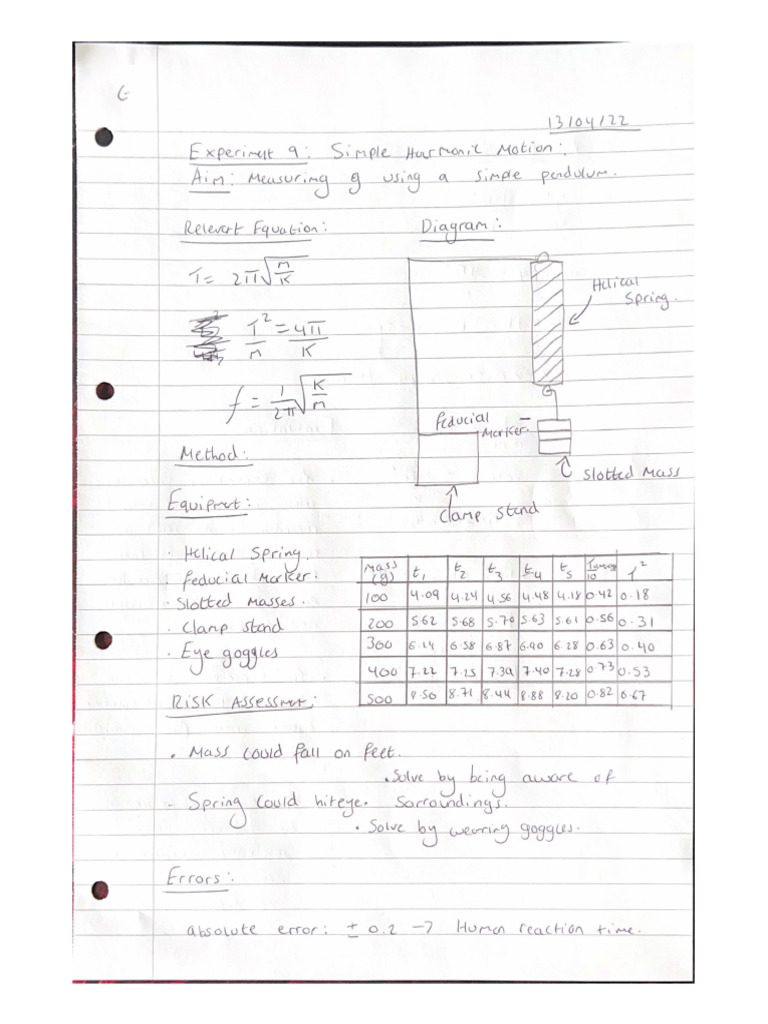 G
13/04/22
Experiment 9: Simple Harmonic Motion:
Aim: Measuring g using a simple pendulum.
Relevent Equation:
T = 2π√m/K
T²/m = 4π/K
f = 1/2π √K/m
Diagram:
Helical Spring.
feducial Marker.
Slotted Mass
Clamp Stand
Method:
Equipment:
· Helical Spring.
· feducial Marker.
· Slotted Masses.
· Clamp stand
· Eye goggles
Mass (g) t₁ t₂ t₃ t₄ t₅ 10 T²
100 4.09 4.24 4.56 4.48 4.18 0.42 0.18
200 5.62 5.68 5.70 5.63 5.61 0.56 0.31
300 6.14 6.58 6.87 6.90 6.28 0.63 0.40
400 7.22 7.25 7.39 7.40 7.28 0.73 0.53
500 8.50 8.71 8.44 8.88 8.20 0.82 0.67
Risk Assessment:
· Mass could fall on feet.
· Solve by being aware of Sorroundings.
- Spring could hit eye.
· Solve by wearing goggles.
Errors:
absolute error: ± 0.2 → Human reaction time.